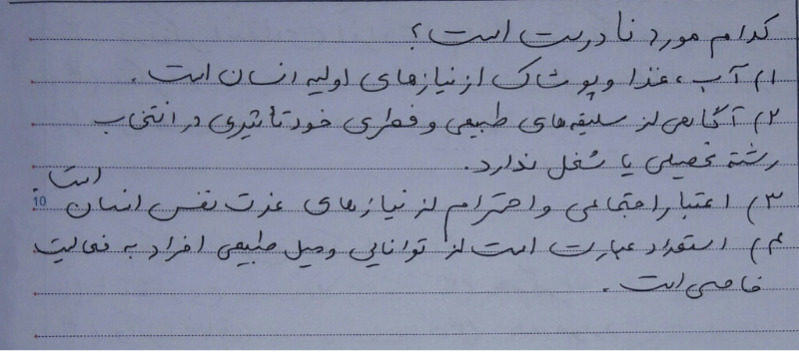 کدام مورد نادرست است؟
۱) آب، غذا و پوشاک از نیازهای اولیه انسان است.
۲) آگاهی از سلیقه‌های طبیعی و فطری خود تأثیری در انتخاب
رشته تحصیلی یا شغل ندارد.
۳) اعتبار اجتماعی و احترام از نیازهای عزت نفس انسان است.
10
۴) استعداد عبارت است از توانایی و میل طبیعی افراد به فعالیت
خاصی است.